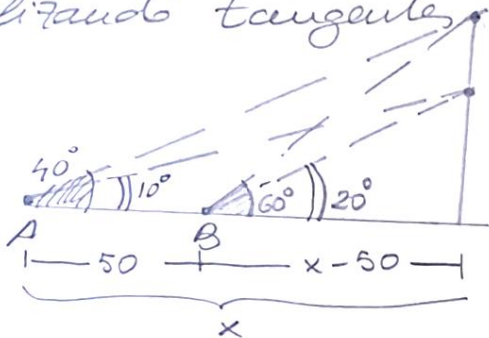 lizando tangentes
40° 10° 60° 20°
A B
50 x-50
x